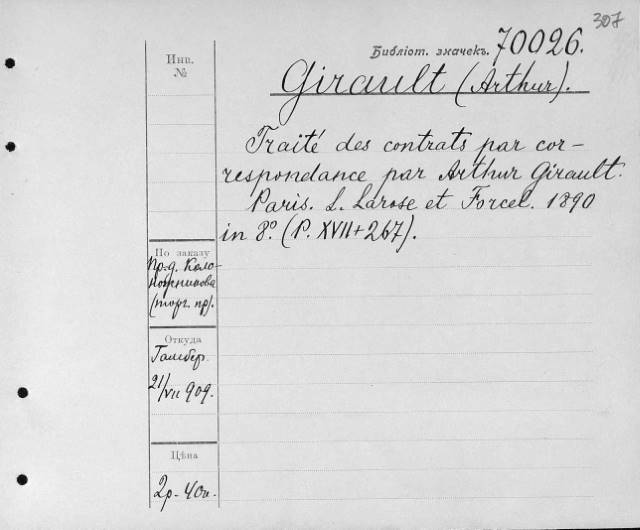 307
Библіот. значекъ. 70026.
Инв.
№
Girault (Arthur).
Traité des contrats par cor-
respondance par Arthur Girault.
Paris. L. Larose et Forcel. 1890
in 8º. (P. XVII+267).
По заказу
Пр.-д.
(торг. пр).
Откуда
21/VII 909.
Цѣна
2р.-40к.